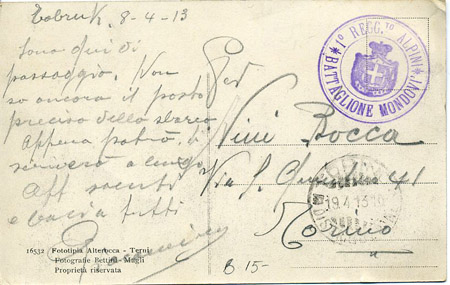 Tobruk, 8-4-13
Sono qui di
passaggio. Non
so ancora il posto
preciso dello sbarco
Appena potrò, ti
scriverò a lungo
Aff saluti
e bacia tutti
16532 Fototipia Alterocca - Terni
Fotografie Bettini-Magli
Proprietà riservata
1º REGG.to ALPINI
*BATTAGLIONE MONDOVI*
Nini Bocca
Via S. Quintino 41
Torino
19.4.13
B 15-